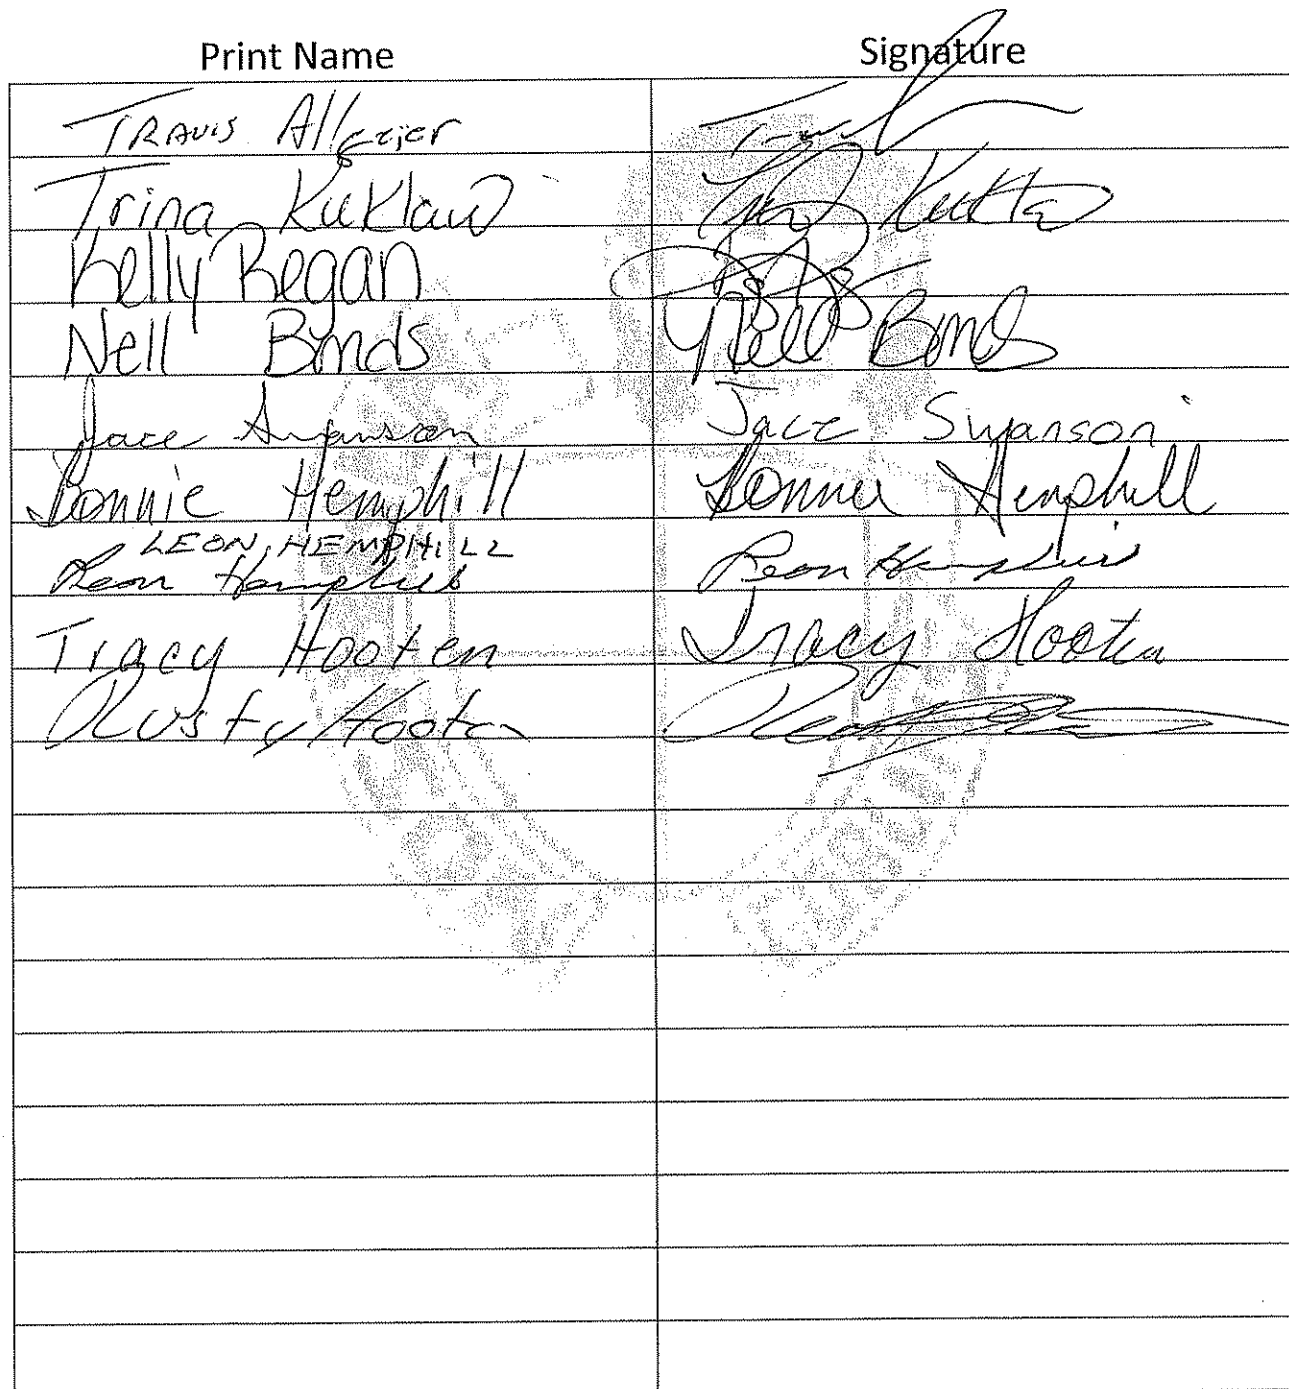 Print Name Signature
Travis Allgeier
Trina Kuklaw Kukla
Kelly Regan
Nell Bonds Nell Bonds
Jace Swanson Jace Swanson
Bonnie Hemphill Bonnie Hemphill
LEON HEMPHILL
Leon Hemphill Leon Hemphill
Tracy Hooten Tracy Hooten
Rusty Hooten